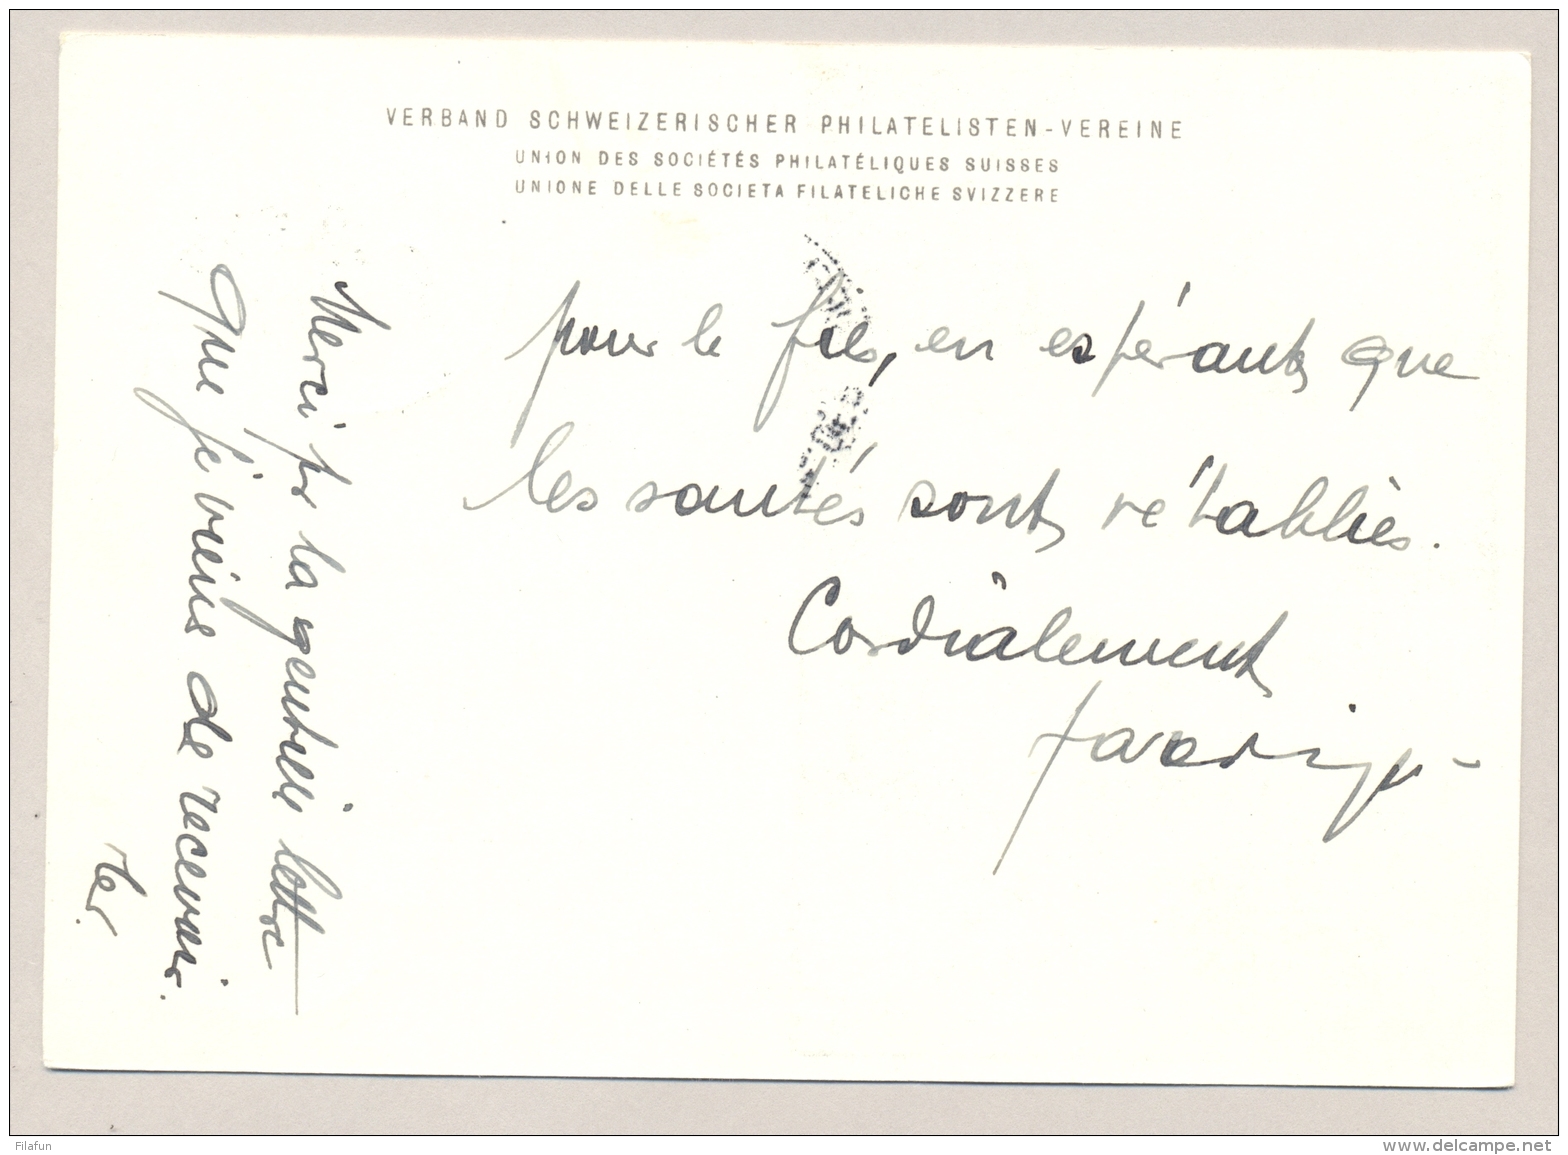 VERBAND SCHWEIZERISCHER PHILATELISTEN-VEREINE
UNION DES SOCIÉTÉS PHILATÉLIQUES SUISSES
UNIONE DELLE SOCIETA FILATELICHE SVIZZERE
pour le fils, en espérant que
les santés sont rétablies.
Cordialement
Merci pr la gentille lettre
que je viens de recevoir.
Filafun
www.delcampe.net